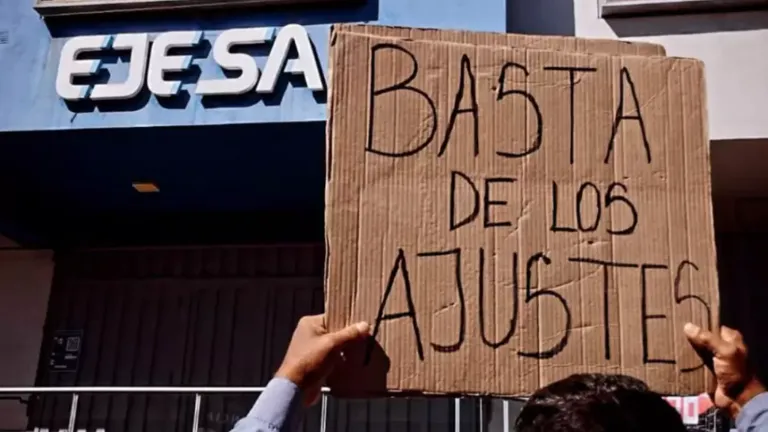 EJESA
BASTA
DE LOS
AJUSTES